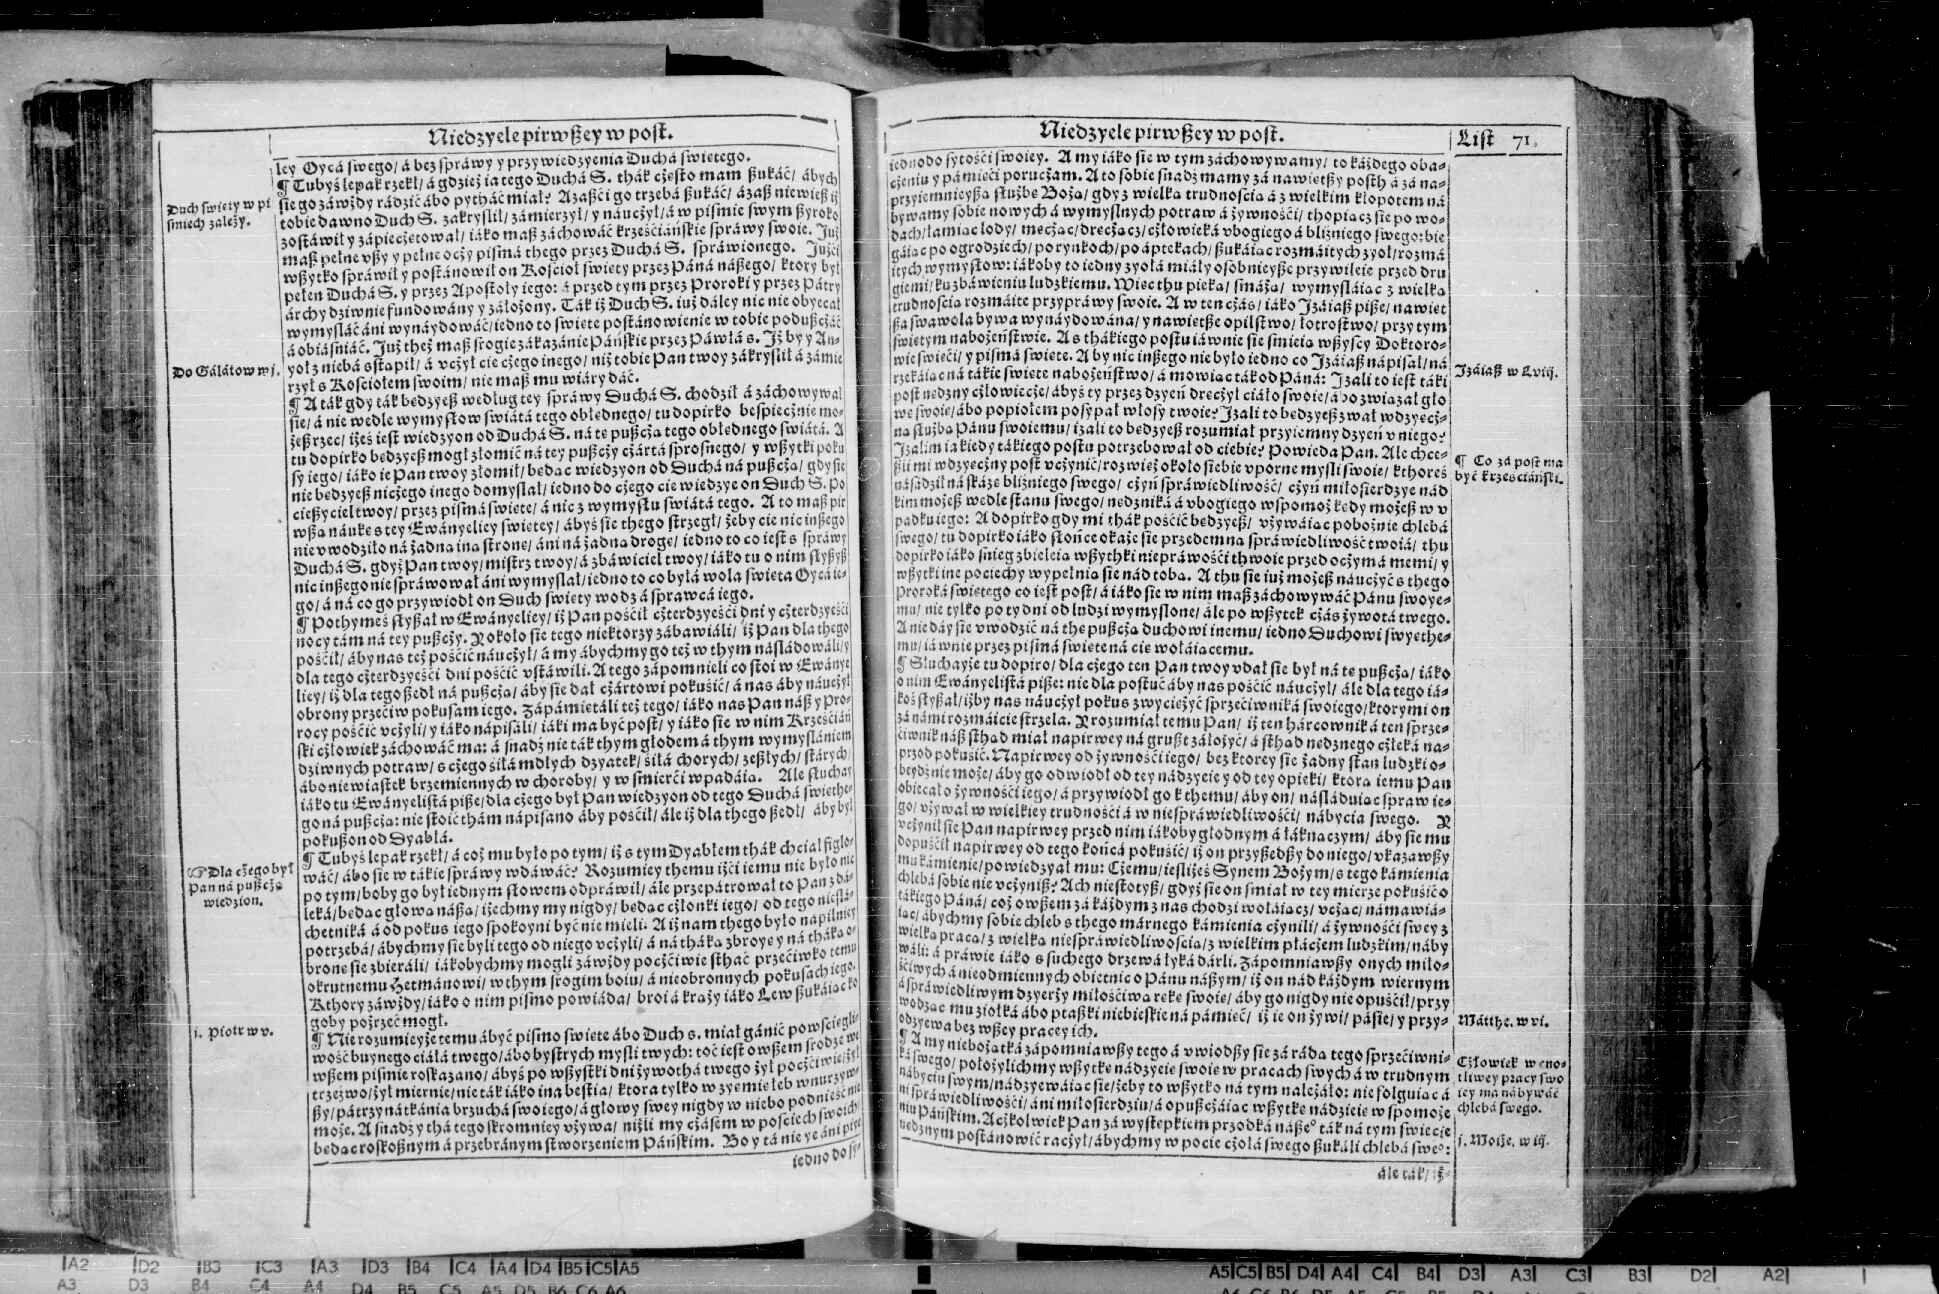 Niedzyele pirwßey w post.
ley Oycá swego/ á bez spráwy y przywiedzyenia Duchá swietego.
¶ Tubyś lepak rzekł/ á gdzież ia tego Duchá S. thák cżesto mam ßukáć/ ábych
sie go záwżdy rádzić ábo pytháć miał? Azaßci go trzebá ßukáć/ ázaß niewieß iż
tobie dawno Duch S. zákryslił/ zámierzył/ y náucżył/ á w pismie swym ßyroko
zostáwił y zápiecżetował/ iáko maß záchowáć krześciáńskie spráwy swoie. Już
maß pełne vßy y pełne ocży pismá thego przez Duchá S. spráwionego. Jużći
wßytko spráwił y postánowił on Kościoł swiety przez Páná náßego/ ktory był
pełen Duchá S. y przez Apostoły iego: á przed tym przez Proroki y przez Pátry
árchy dziwnie fundowány y záłożony. Ták iż Duch S. iuż dáley nic nie obyecał
wymysláć áni wynáydowáć/ iedno to swiete postánowienie w tobie podußcżáć
á obiáśniáć. Już też maß srogie zákazánie Páńskie przez Páwłá s. Jż by y An-
yoł z niebá sstąpił/ á vcżył cie cżego inego/ niż tobie Pan twoy zákryslił á zámie
rzył s Kościołem swoim/ nie maß mu wiáry dáć.
¶ A ták gdy ták bedzyeß według tey spráwy Duchá S. chodził á záchowywał
sie/ á nie wedle wymysłow swiátá tego obłednego/ tu dopirko bespiecżnie mo-
żeß rzec/ iżeś iest wiedzyon od Duchá S. ná te pußcża tego obłednego swiátá. A
tu dopirko bedzyeß mogł złomić ná tey pußcży cżártá sprosnego/ y wßytki poku
sy iego/ iáko ie Pan twoy złomił/ bedac wiedzyon od Duchá ná pußcża/ gdy sie
nie bedzyeß nicżego inego domyslał/ iedno do cżego cie wiedzye on Duch S. po
cießyciel twoy/ przez pismá swiete/ á nic z wymysłu swiátá tego. A to maß pir
wßa náuke s tey Ewányeliey swietey/ ábyś sie thego strzegł/ żeby cie nic inßego
nie vwodziło ná żadna ina strone/ áni ná żadna droge/ iedno to co iest s spráwy
Duchá S. gdyż Pan twoy/ mistrz twoy/ á zbáwiciel twoy/ iáko tu o nim słyßyß
nic inßego nie spráwował áni wymyslał/ iedno to co byłá wola swieta Oycá ie-
go/ á ná co go przywiodł on Duch swiety wodz á sprawcá iego.
¶ Pothymeś słyßał w Ewányeliey/ iż Pan pościł cżterdzyeści dni y cżterdzyeści
nocy tám ná tey pußcży. Y około sie tego niektorzy zábawiáli/ iż Pan dla thego
pościł/ áby nas też pościć náucżył/ á my ábychmy go też w thym násládowáli/ y
dla tego cżterdzyeści dni pościć vstáwili. A tego zápomnieli co stoi w Ewánye
liey/ iż dla tego ßedł ná pußcża/ áby sie dał cżártowi pokuśić/ á nas áby náucżył
obrony przeciw pokusam iego. Zápámietáli też tego/ iáko nas Pan náß y Pro-
rocy pościć vcżyli/ y iáko nápisáli/ iáki ma być post/ y iáko sie w nim Krześcián
ski cżłowiek záchowáć ma: á snadź nie ták thym głodem á thym wymyslániem
dziwnych potraw/ s cżego siłá mdłych dzyatek/ siłá chorych/ zeßłych/ stárych/
ábo niewiástek brzemiennych w choroby/ y w śmierci wpadáia. Ale słuchay
iáko tu Ewányelistá piße/ dla cżego był Pan wiedzyon od tego Duchá swiethe-
go ná pußcża: nie stoić thám nápisano áby pościł/ ále iż dla thego ßedł/ áby był
pokußon od Dyabłá.
¶ Tubyś lepak rzekł/ á coż mu było po tym/ iż s tym Dyabłem thák chciał figlo-
wáć/ ábo sie w tákie spráwy wdáwáć? Rozumiey themu iżći iemu nie było nic
po tym/ boby go był iednym słowem odpráwił/ ále przepátrował to Pan z dá-
leká/ bedac głowa náßa/ iżechmy my nigdy/ bedac cżłonki iego/ od tego niesłá-
chetniká á od pokus iego spokoyni być nie mieli. A iż nam thego było napilniey
potrzebá/ ábychmy sie byli tego od niego vcżyli/ á ná tháka zbroye y ná tháka o-
brone sie zbieráli/ iákobychmy mogli záwżdy pocżciwie stháć przeciwko temu
okrutnemu Hetmánowi/ w thym srogim boiu/ á nieobronnych pokusach iego.
Kthory záwżdy/ iáko o nim pismo powiáda/ broi á krąży iáko Lew ßukáiac ko
goby pożrzeć mogł.
¶ Nie rozumieyże temu ábyć pismo swiete ábo Duch s. miał gánić powściegli-
wość buynego ciáłá twego/ ábo bystrych mysli twych: toć iest owßem srodze we
wßem pismie roskazano/ ábyś po wßystki dni żywothá twego żył pocżciwie/ żył
trzeźwo/ żył miernie/ nie ták iáko ina bestia/ ktora tylko w zyemie łeb wnurzyw-
ßy/ pátrzy nátkánia brzuchá swoiego/ á głowy swey nigdy w niebo podnieść nie
może. A snadź y thá tego skromniey vżywa/ niżli my cżásem w pościech swoich
bedac roskoßnym á przebránym stworzeniem Páńskim. Bo y tá nie ye áni pije
iedno do sy-
Duch swiety w pi
smiech zależy.
Do Gálátow w j.
☞ Dla cżego był
Pan ná pußcża
wiedzion.
i. Piotr w v.
Niedzyele pirwßey w post.
List 71.
iedno do sytości swoiey. A my iáko sie w tym záchowywamy/ to káżdego oba-
cżeniu y pámieci porucżam. A to sobie snadź mamy zá nawietßy posth á zá na-
przyiemnieyßa służbe Boża/ gdy z wielka trudnościa á z wielkim kłopotem ná
bywamy sobie nowych á wymyslnych potraw á żywności/ thopiacz sie po wo-
dach/ łamiac lody/ mecżac/ drecżacz/ cżłowieká vbogiego á bliźniego swego: bie
gáiac po ogrodziech/ po rynkoch/ po áptekach/ ßukáiac rozmáitych zyoł/ rozmá
itych wymysłow: iákoby to iedny zyołá miáły osobnieyße przywileie przed dru
giemi/ ku zbáwieniu ludzkiemu. Wiec thu pieka/ smáża/ wymysláiac z wielka
trudnościa rozmáite przypráwy swoie. A w ten cżás/ iáko Jzáiaß piße/ nawiet
ßa swawola bywa wynáydowána/ y nawietße opilstwo/ łotrostwo/ przy tym
swietym nabożeństwie. A s thákiego postu iáwnie sie śmieia wßyscy Doktoro-
wie swieci/ y pismá swiete. A by nic inßego nie było iedno co Jzáiaß nápisał/ ná
rzekáiac ná tákie swiete nabożeństwo/ á mowiac ták od Páná: Jzali to iest táki
post nedzny cżłowiecże/ ábyś ty przez dzyeń drecżył ciáło swoie/ ábo zwiazał gło
we swoie/ ábo popiołem posypał włosy twoie? Jzali to bedzyeß zwał wdzyecż-
na służba Pánu swoiemu/ izali to bedzyeß rozumiał przyiemny dzyeń v niego?
Jzalim ia kiedy tákiego postu potrzebował od ciebie? Powieda Pan. Ale chce-
ßli mi wdzyecżny post vcżynić/ rozwież około siebie vporne mysli swoie/ kthoreś
násádził ná skáże bliźniego swego/ cżyń spráwiedliwość/ cżyń miłosierdzye nád
kim możeß wedle stanu swego/ nedzniká á vbogiego wspomoż kedy możeß w v
padku iego: A dopirko gdy mi thák pościć bedzyeß/ vżywáiac pobożnie chlebá
swego/ tu dopirko iáko słońce okaże sie przedemna spráwiedliwość twoiá/ thu
dopirko iáko śnieg zbieleia wßythki niepráwości thwoie przed ocżymá memi/ y
wßytki ine pociechy wypełnia sie nád toba. A thu sie iuż możeß náucżyć s thego
Proroká swietego co iest post/ á iáko sie w nim maß záchowywáć Pánu swoye-
mu/ nie tylko po ty dni od ludzi wymyslone/ ále po wßytek cżás żywotá twego.
A nie day sie vwodzić ná the pußcża duchowi inemu/ iedno Duchowi swyethe-
mu/ iáwnie przez pismá swiete ná cie wołáiacemu.
¶ Słuchayże tu dopiro/ dla cżego ten Pan twoy vdał sie był ná te pußcża/ iáko
o nim Ewányelistá piße: nie dla postuć áby nas pościć náucżył/ ále dla tego iá-
koś słyßał/ iżby nas náucżył pokus zwycieżyć sprzeciwniká swoiego/ ktorymi on
zá námi rozmáicie strzela. Yrozumiał temu Pan/ iż ten hárcownik á ten sprze-
ciwnik náß sthad miał napirwey ná grußt záłożyć/ á sthad nedznego cżłeká na-
przod pokuśić. Napirwey od żywności iego/ bez ktorey sie żadny stan ludzki o-
beydźnie może/ áby go odwiodł od tey nádzyeie y od tey opieki/ ktora iemu Pan
obiecał o żywności iego/ á przywiodł go k themu/ áby on/ násláduiac spraw ie-
go/ vżywał w wielkiey trudności á w niespráwiedliwości/ nábycia swego. Y
vcżynił sie Pan napirwey przed nim iákoby głodnym á łáknaczym/ áby sie mu
dopuścił napirwey od tego końcá pokuśić/ iż on przyßedßy do niego/ vkazawßy
mu kámienie/ powiedzyał mu: Cżemu/ iesliżeś Synem Bożym/ s tego kámienia
chlebá sobie nie vcżyniß? Ach niestotyß/ gdyż sie on śmiał w tey mierze pokuśić o
tákiego Páná/ coż owßem zá káżdym z nas chodzi wołáiacz/ vcżac/ námawiá-
iac/ ábychmy sobie chleb s thego márnego kámienia cżynili/ á żywności swey z
wielka praca/ z wielka niespráwiedliwościa/ z wielkim płácżem ludzkim/ náby
wáli: á práwie iáko s suchego drzewá łyká dárli. Zápomniawßy onych miło-
ściwych á nieodmiennych obietnic o Pánu náßym/ iż on nád káżdym wiernym
á spráwiedliwym dzyerży miłościwa reke swoie/ áby go nigdy nie opuścił/ przy
wodzac mu ziołká ábo ptaßki niebieskie ná pámieć/ iż ie on żywi/ pásie/ y przy-
odzyewa bez wßey pracey ich.
¶ A my niebożatká zápomniawßy tego á vwiodßy sie zá ráda tego sprzeciwni-
ká swego/ położylichmy wßytke nádzyeie swoie w pracach swych á w trudnym
nábyciu swym/ nádzyewáiac sie/ żeby to wßytko ná tym należáło: nie folguiac á
ni spráwiedliwości/ áni miłosierdziu/ á opußcżáiac wßytke nádzieie w spomoże
niu Páńskim. Acżkolwiek Pan zá wystepkiem przodká náßeᵒ ták ná tym swiecie
nedznym postánowić racżył/ ábychmy w pocie cżołá swego ßukáli chlebá sweᵒ:
ále ták/ iż-
Jzáiaß w Lviij.
¶ Co zá post ma
być krześciáński.
Mátthe. w vi.
Cżłowiek w cno-
tliwey pracy swo
iey ma nábywáć
chlebá swego.
j. Moiże. w iij.
A2 D2 B3 C3 A3 D3 B4 C4 A4 D4 B5 C5 A5
A3 D3 B4 C4 A4 D4 B5 C5 A5 D5 B6 C6 A6
A5 C5 B5 D4 A4 C4 B4 D3 A3 C3 B3 D2 A2